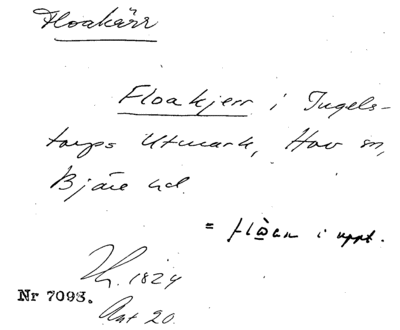 Floakärr
Floakjerr i Ingels-
torps Utmark, Hov sn,
Bjäre hd.
= flōen i uppt.
1824
Nr 7093.
Akt 20.